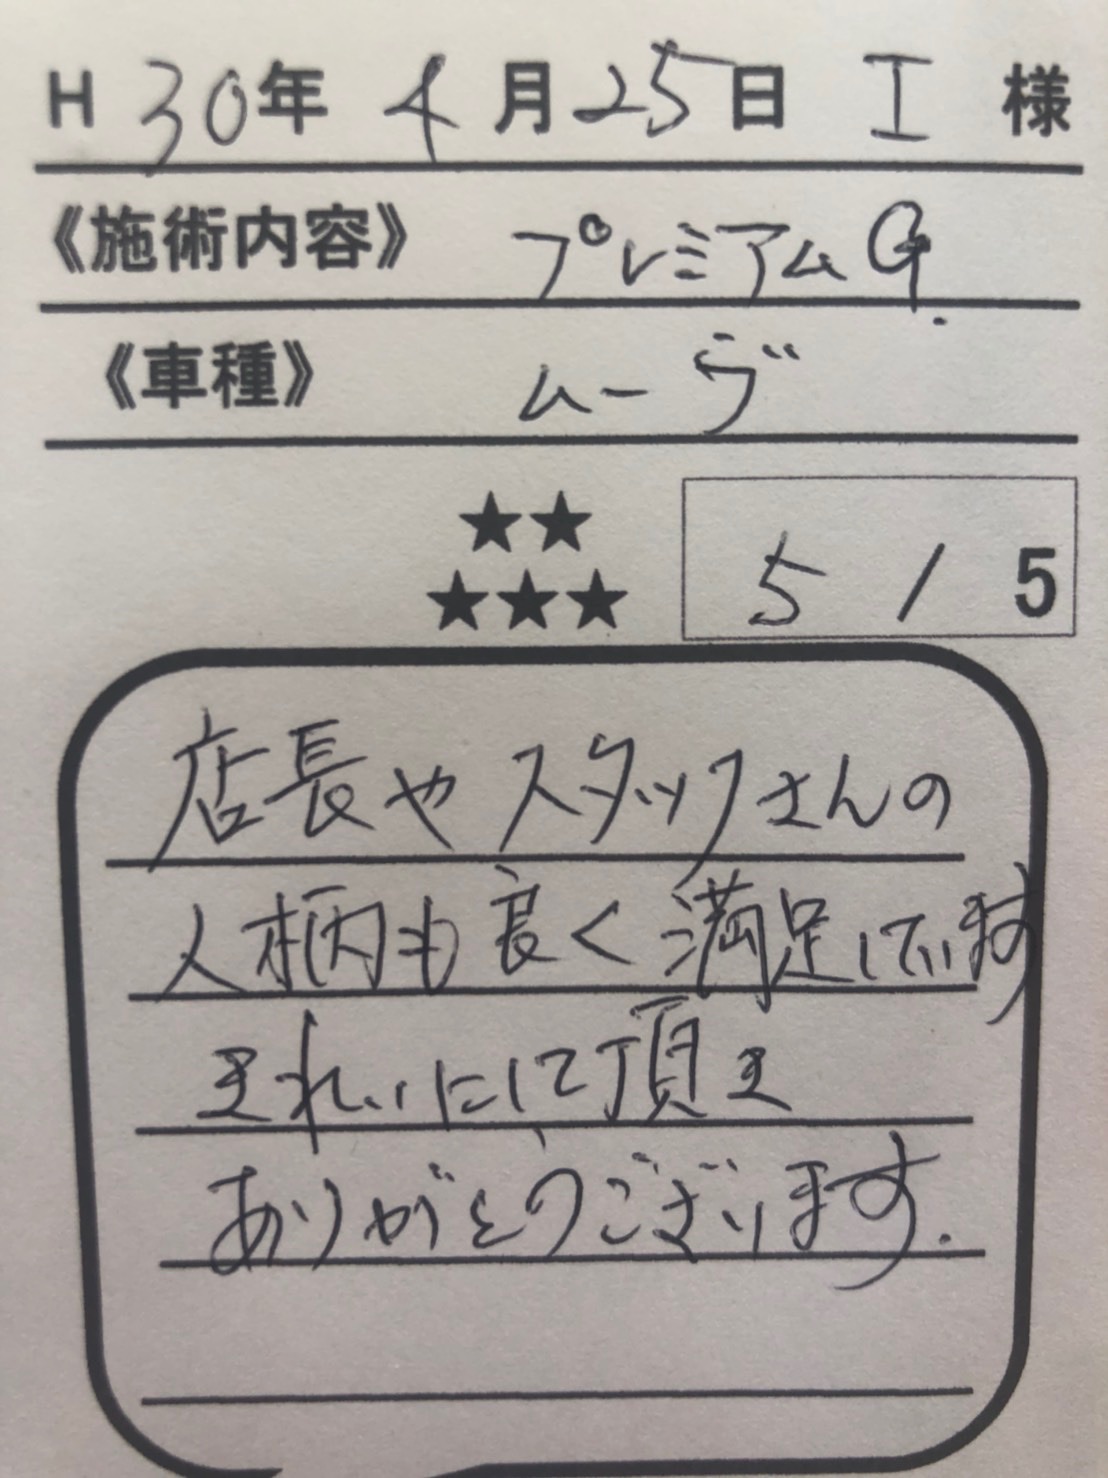 H 30年 4月25日 I 様
《施術内容》 プレミアムG.
《車種》 ムーヴ
★★
★★★ 5 / 5
店長やスタッフさんの
人柄も良く満足しています
きれいにして頂き
ありがとうございます.